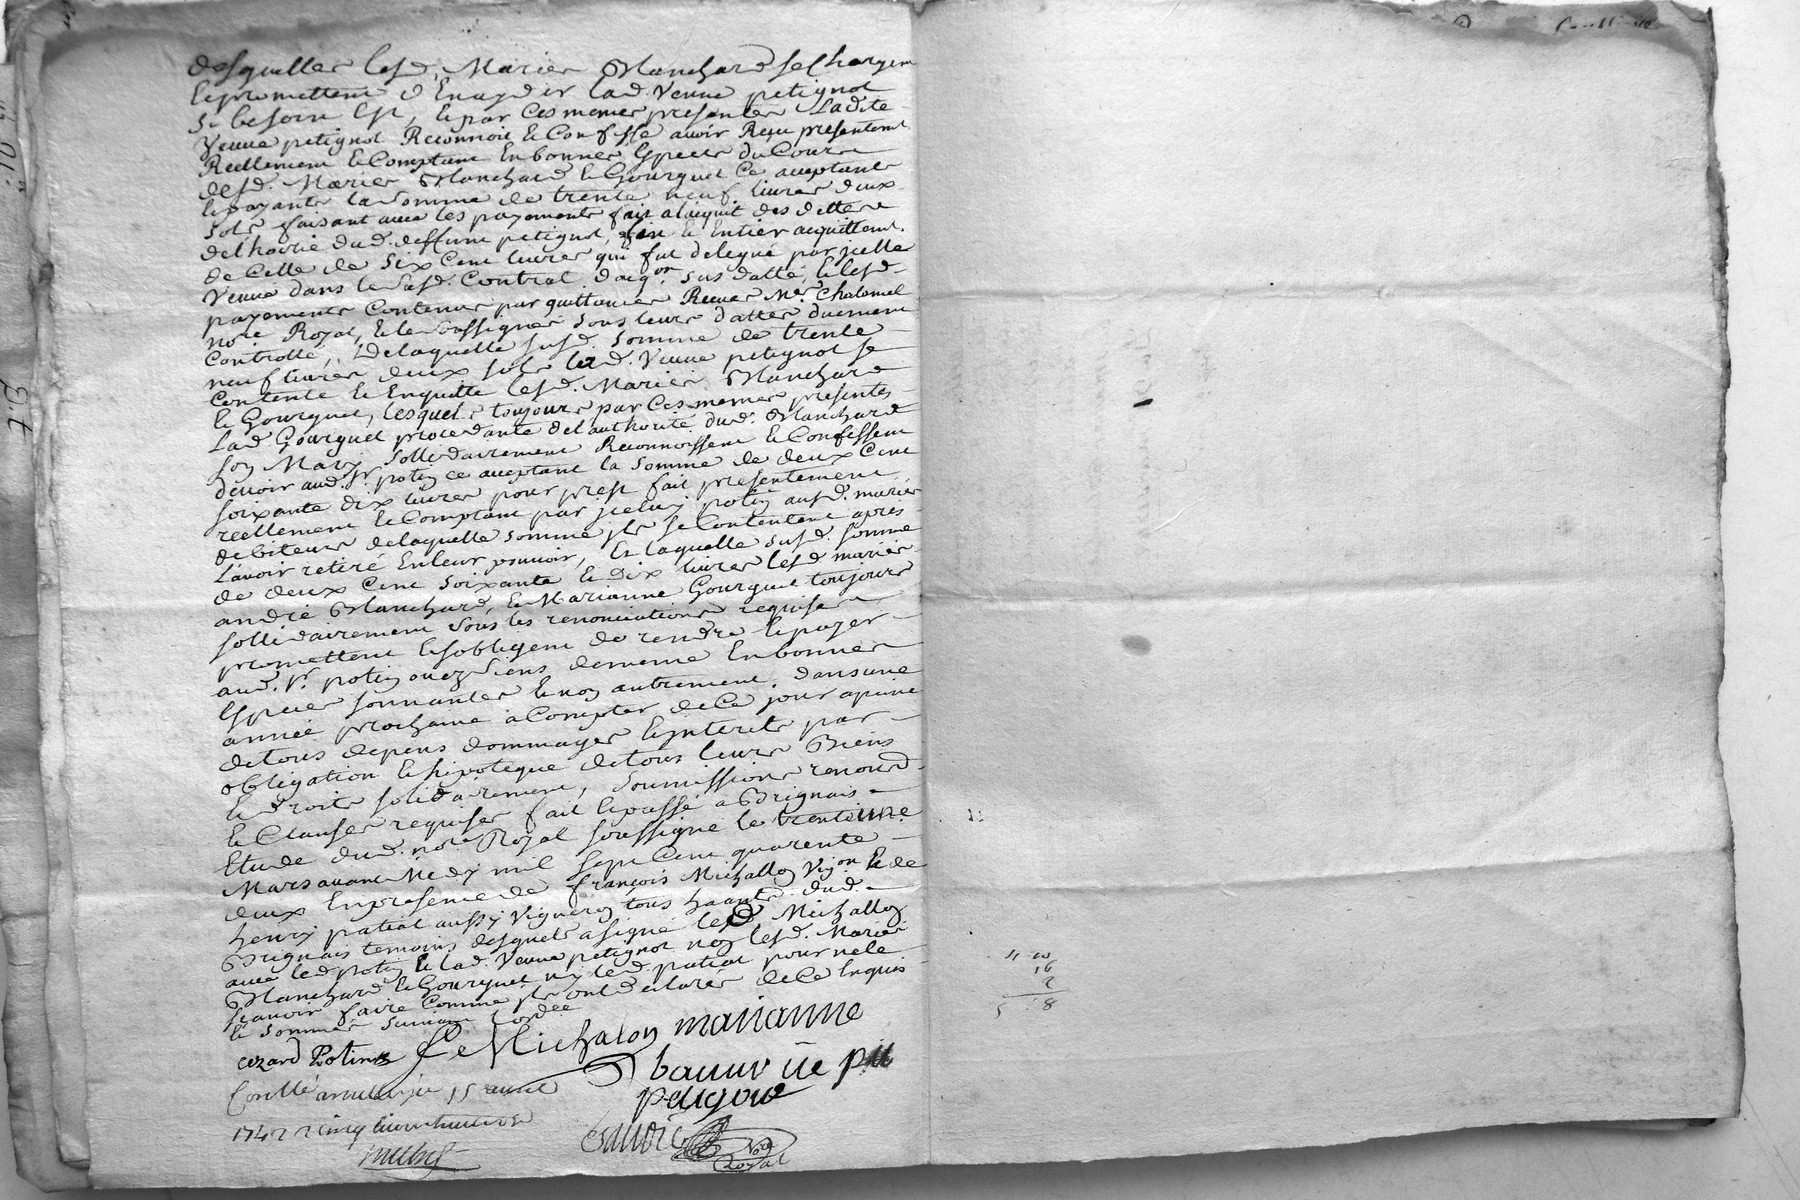 desquelles lesd. Mariés Blanchard se Chargent
et promettent d'En ayder lad. Veuve petignot
si besoin Est, et par Ces memes presentes Ladite
Veuve petignot Reconnoit et Confesse avoir Reçu presentemt
Reellement et Comptant En bonnes Especes du Cours
desd. Mariés Blanchard et Gourguet Ce acceptants
et payants la somme de trente neuf livres deux
sols faisant avec les payements fait a l'acquit des dettes
del'hoirie dud. deffunt petignot, fin et Entier acquittemt.
de Celle de Six Cent livres qui fut delegué par jcelle
Veuve dans le susd. Contrat d'acqon. sus datté, et lesd.
payements Contenus par quittances Reçues Me. Chalamel
nore Royal, et le soussigné sous leurs dattes duement
Controllé, Delaquelle susd. somme de trente
neuf livres deux sols lad. Veuve petignot se
Contente et Enquitte lesd. Mariés Blanchard
et Gourguet, lesquels toujours par Ces memes presentes
Lad Gourguet procedante del'authorité dud. Blanchard
son Mary sollidairement Reconnoissent et Confessent
devoir aud. sr. potin ce acceptant la somme de deux Cent
soixante dix livres pour prest fait presentement
reellement et Comptant par jceluy potin ausd. mariés
debiteurs delaquelle somme jls se Contentent après
L'avoir retiré En leur pouvoir, Et laquelle susd. somme
de deux Cent soixante et Dix livres lesd mariés
andré Blanchard, et Marianne Gourguet toujours
sollidairement sous les renonciations requises
promettent et s'obligent de rendre et payer
aud. sr. potin ou ez siens de meme En bonnes
Especes sonnantes et non autrement, dans une
année prochaine à Compter de Ce jour a peine
de tous depens dommages et jnterets par
obligation et hipoteque de tous leurs Biens
et Droits solidairement, soumissions renond.
et Clauses requises fait et passé a Brignais
Etude dud. nore Royal soussigné le trentieme
Mars avant Midy mil sept Cent quarente
deux En presence de françois Michallon Vigon Et de
henry patiat aussy Vigneron tous haants dud.
Brignais temoins desquels a signé led Michallon
avec led. potin Et lad. Veuve petignot non lesd. Mariés
Blanchard et Gourguet ny led patiat pour ne le
sçavoir faire Comme jls ont declarés de Ce Enquis
et sommés suivant L'ordce
cezard Potin f Michalon marianne
petignot
Conllé 15 avril
1742
Nore
Royal
16
2
8